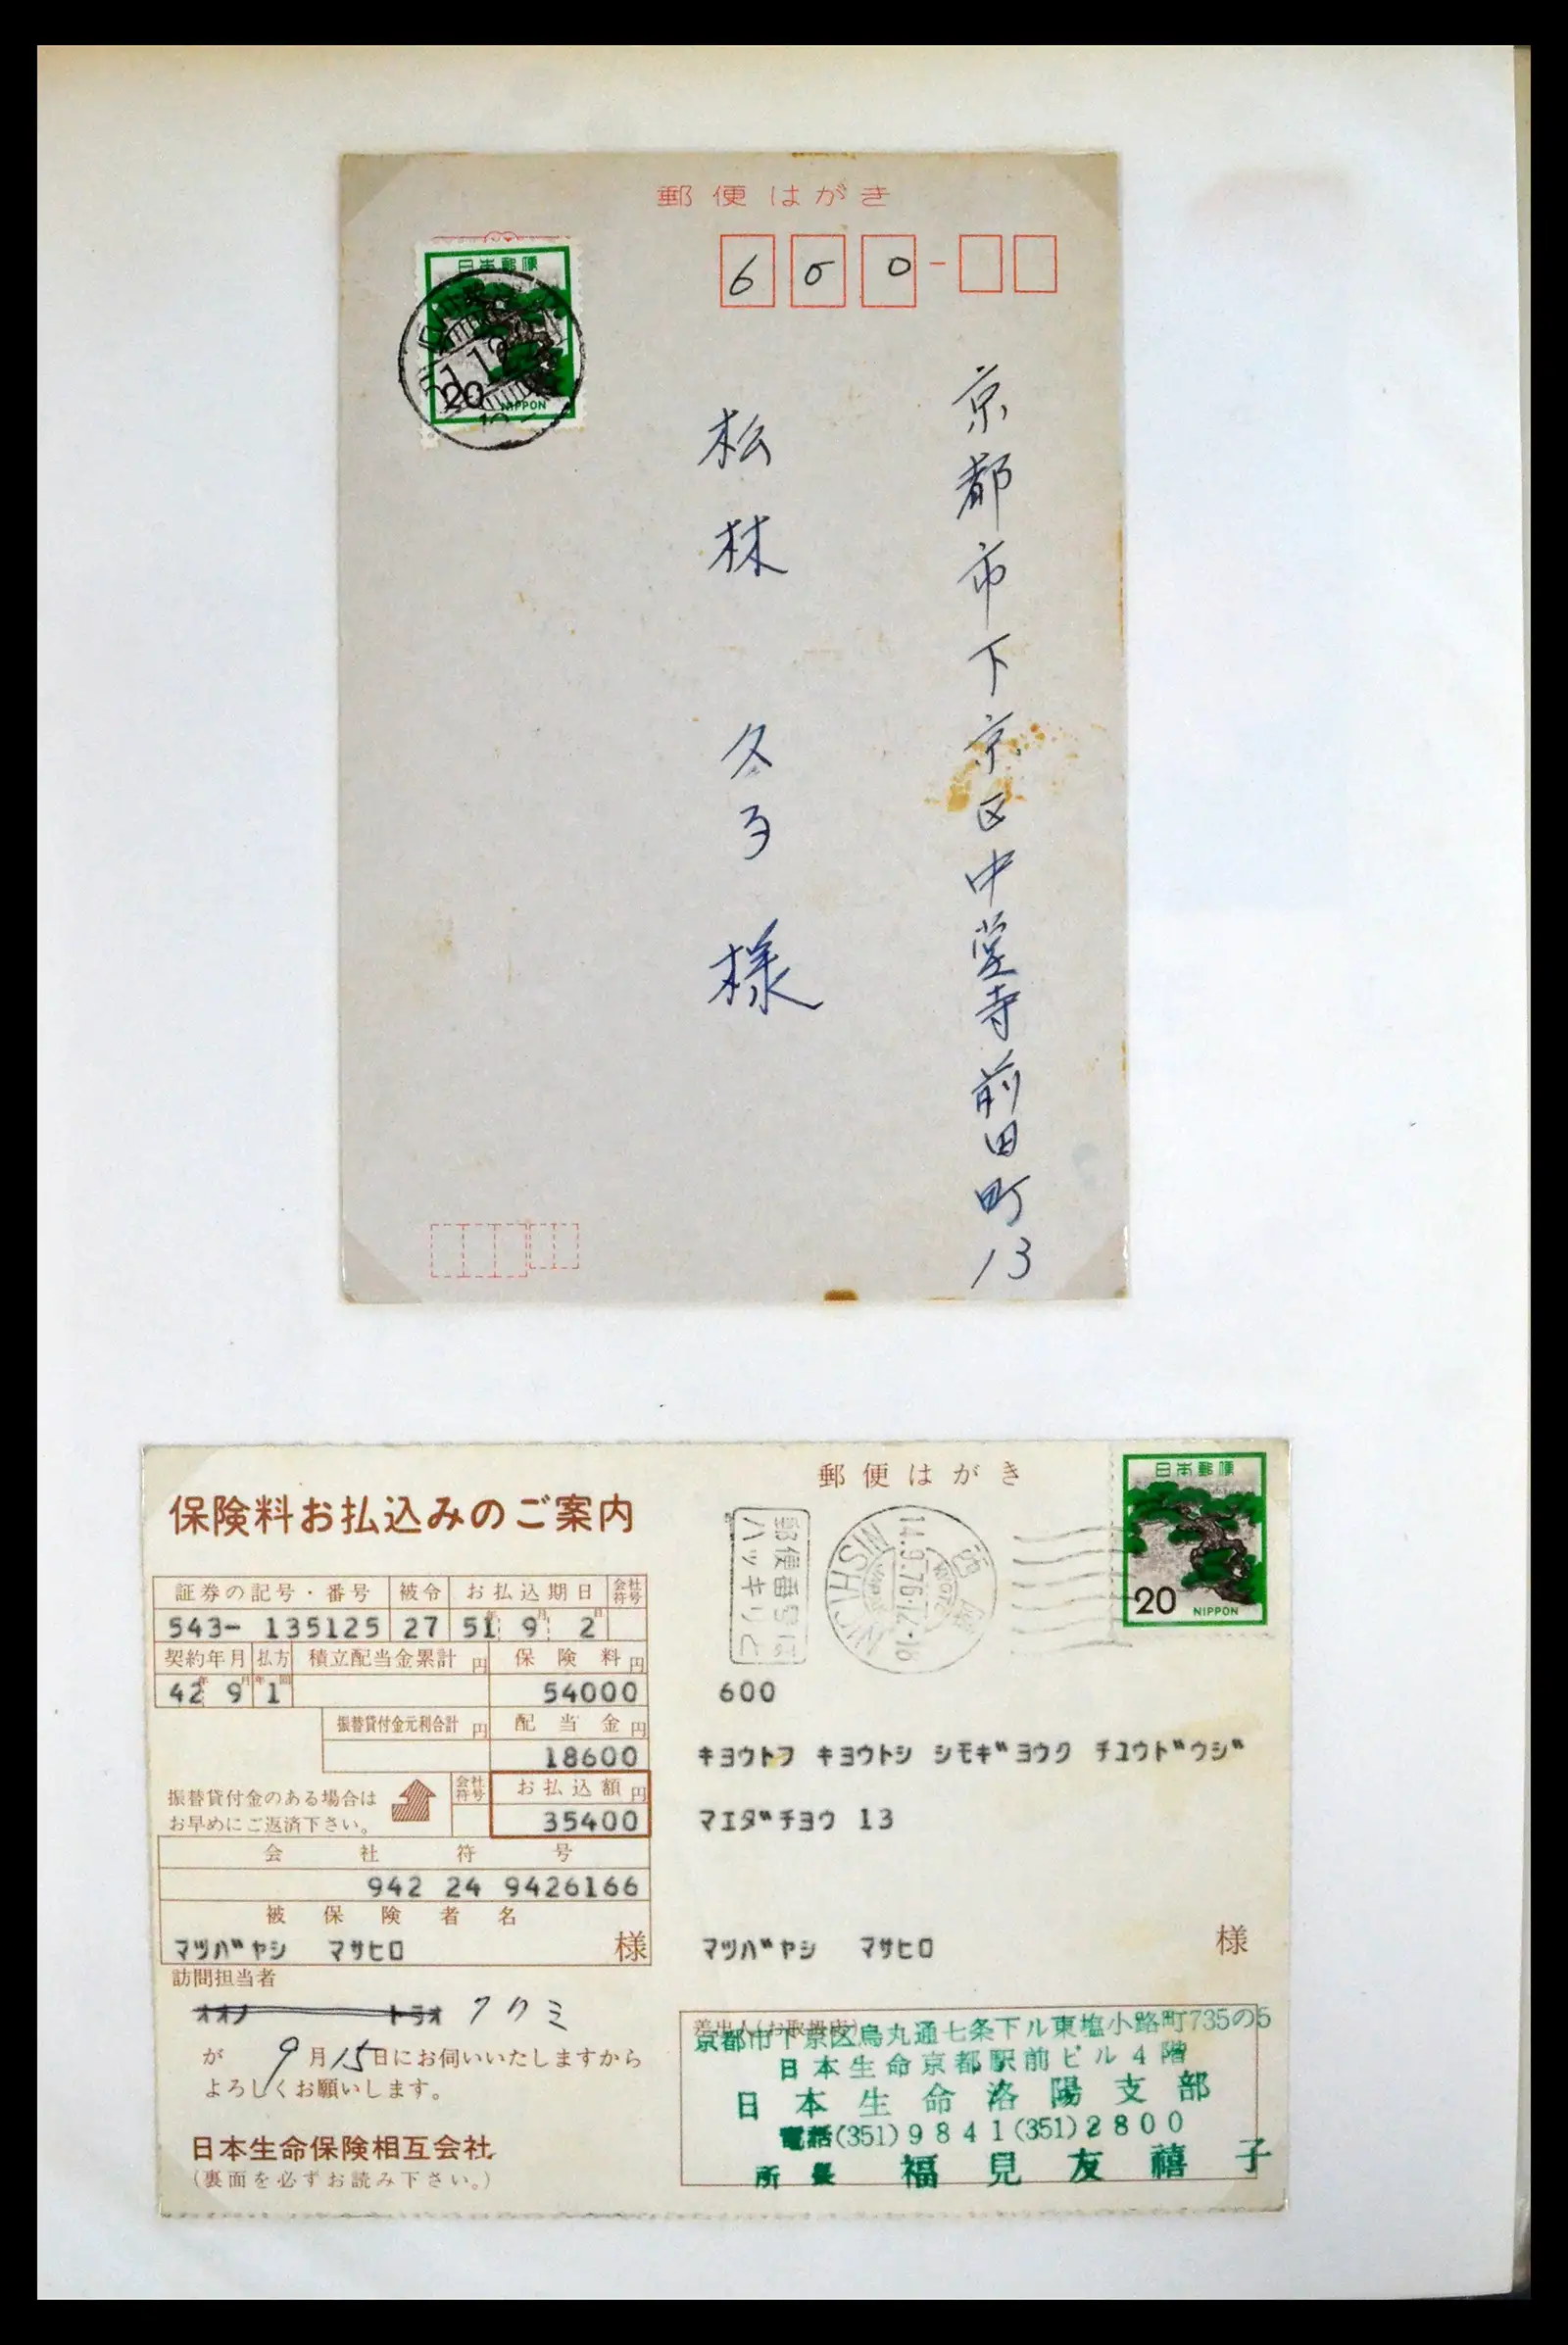 郵便はがき
日本郵便
20 NIPPON
600-
京都市下京区中堂寺前田町13
松林 久子 様
保険料お払込みのご案内
証券の記号・番号 被令 お払込期日 会社符号
543- 135125 27 51年 9月 2日
契約年月 払方 積立配当金累計 円 保険料 円
42年 9月 年1回 54000
振替貸付金元利合計 円 配当金 円
18600
振替貸付金のある場合は
お早めにご返済下さい。
会社符号 お払込額 円
35400
会社符号
942 24 9426166
被保険者名
マツバヤシ マサヒロ 様
訪問担当者
オオノ トラオ フクミ
が 9月15日にお伺いいたしますから
よろしくお願いします。
日本生命保険相互会社
(裏面を必ずお読み下さい。)
郵便はがき
郵便番号は
ハッキリと
NISHIJIN
14.9.76.12-18
日本郵便
20 NIPPON
600
キヨウトフ キヨウトシ シモギヨウク チユウドウジ
マエダチヨウ 13
マツバヤシ マサヒロ 様
差出人(お取扱店)
京都市下京区烏丸通七条下ル東塩小路町735の5
日本生命京都駅前ビル4階
日本生命洛陽支部
電話(351)9841(351)2800
所長 福見友禧子